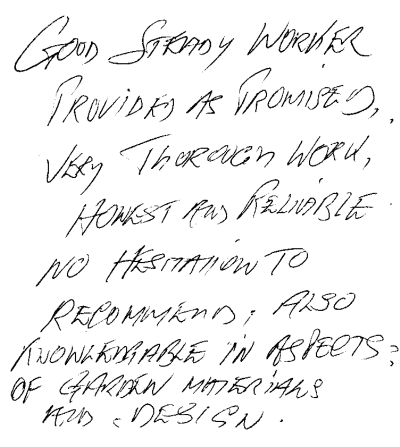 GOOD STEADY WORKER
PROVIDED AS PROMISED,
VERY THOROUGH WORK,
HONEST AND RELIABLE
NO HESITATION TO
RECOMMEND; ALSO
KNOWLEDGABLE IN ASPECTS
OF GARDEN MATERIALS
AND DESIGN.